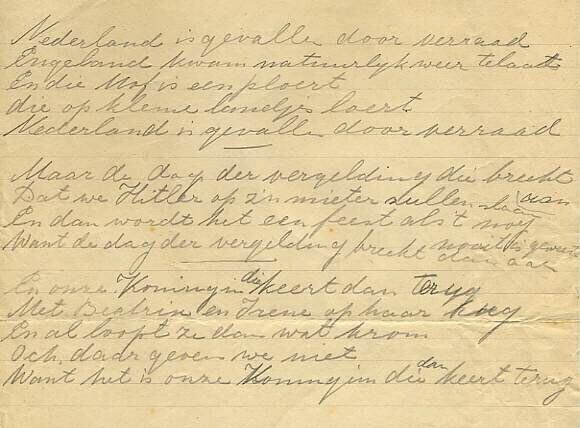 Nederland is gevallen door verraad
Engeland kwam natuurlijk weer te laat
En die Mof is een ploert
die op kleine landjes loert
Nederland is gevallen door verraad
Maar de dag der vergelding die breekt aan
Dat we Hitler op z'n mieter zullen slaan
En dan wordt het een feest als 't nog nooit is geweest
Want de dag der vergelding breekt dan aan
En onze Koningin die keert dan terug
Met Beatrix en Irene op haar rug
En al loopt ze dan wat krom
Och, daar geven we niet
Want het is onze Koningin die dan keert terug